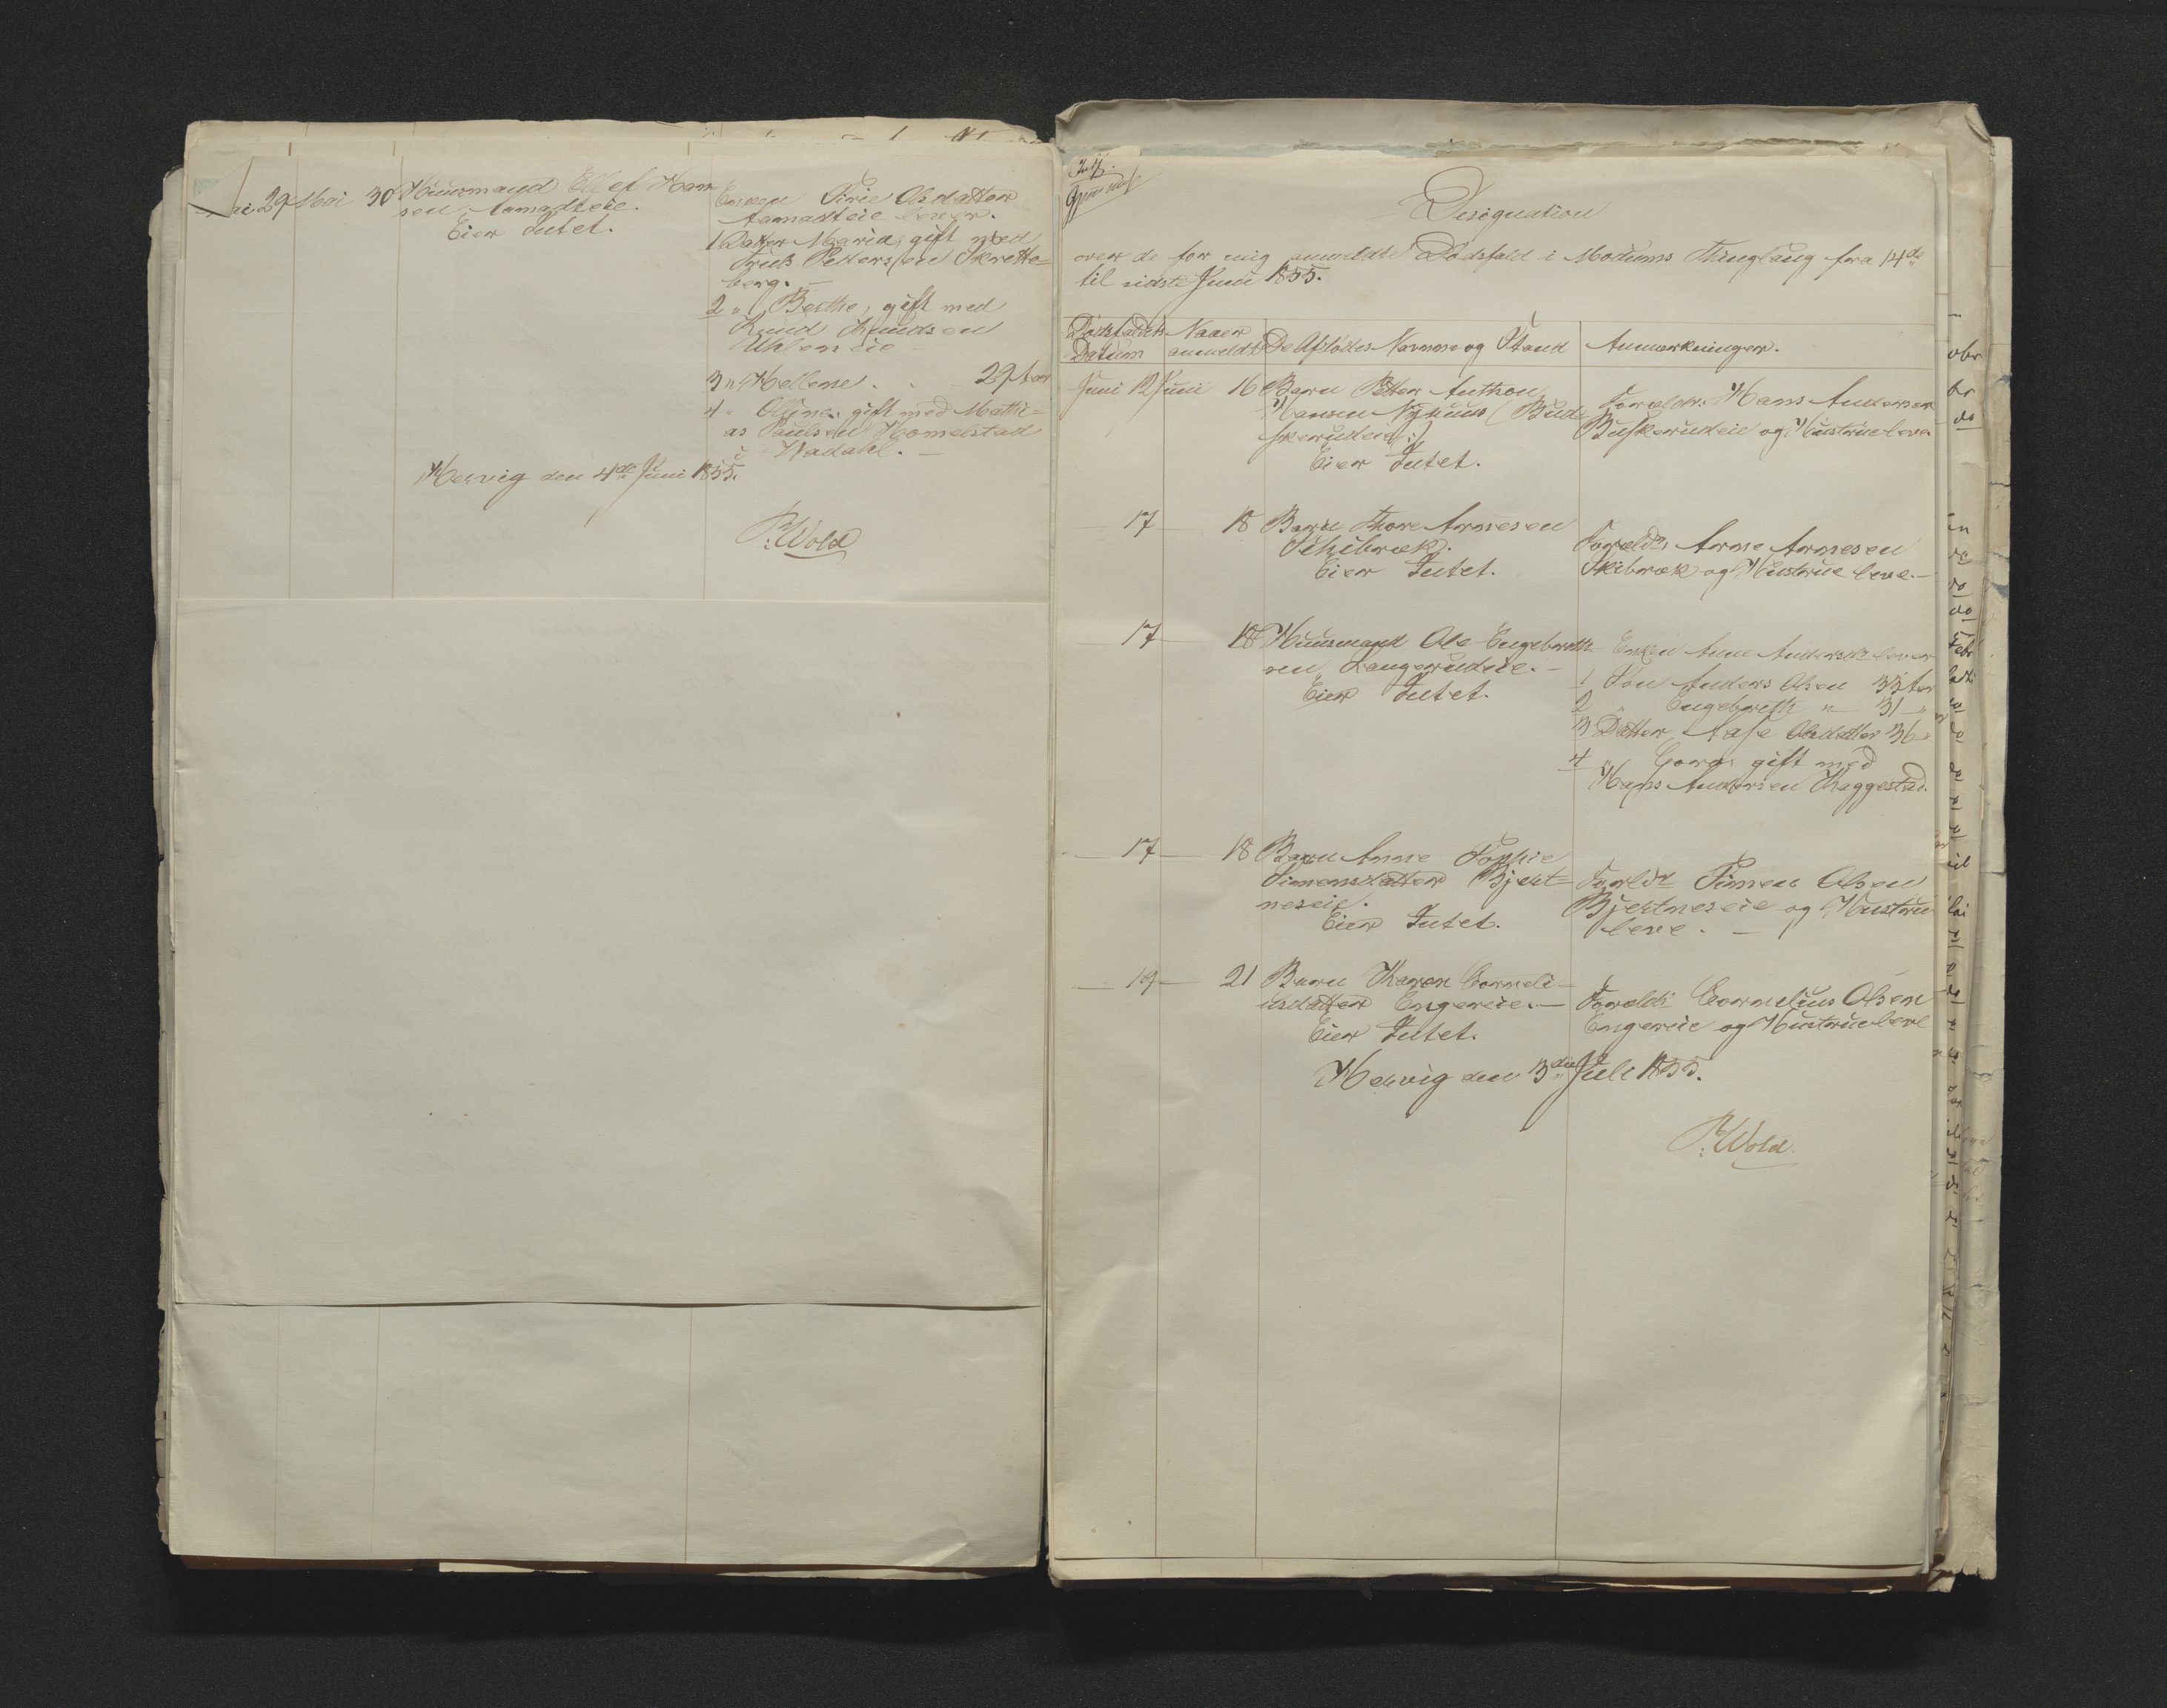 29 Mai 30 Huusmand Ellef Han
sen Aamodteie.
Eier Intet.
Enken Sirie Olsdatter
Aamodteie lever.
1 Datter Maria, gift med
Truls Pettersen Skrette=
berg. —
2 " Berthe, gift med
Knud Knudsen
Uhleneie
3 " Hellene . . 29 Aar
4 " Oline, gift med Mathi=
as Paulsen Homelstad
i Wadahl. —
Hervig den 4de Juni 1855.
P. Wold
Designation
over de for mig anmeldte Dødsfald i Modums Thinglaug fra 14de
til sidste Juni 1855.
Dødsfaldets Datum
Naar anmeldt
De Afdødes Navnne og Stand
Anmærkninger.
Juni 12 Juni 16 Barn Petter Anthon
Hansen Nyhuus (Bud
skerudeie)
Eier Intet.
Forældr. Hans Andersen
Buskerudeie og Hustrue leve
— 17 — 18 Barn Thore Arnesen
Schibræk.
Eier Intet.
Foreldr. Arne Arnesen
Skibræk og Hustrue leve. —
— 17 — 18 Huusmand Ole Engebreth
sen Langerudeie. —
Eier Intet.
Enken Anne Andersdr lever
1 Søn Anders Olsen 33 Aar
2 " Engebreth " 31 "
3 Datter Aase Olsdatter 36
4 " Goro, gift med
Hans Andersen Kaggestad.
— 17 — 18 Barn Anne Sophie
Simensdatter Bjertt=
neseie.
Eier Intet.
Foreldr Simen Olsen
Bjertneseie og Hustrue
leve. —
— 19 — 21 Barn Karen Corneli=
usdatter Engereie. —
Eier Intet.
Foreldr Cornelius Olsen
Engereie og Hustrue leve
Hervig den 3die Juli 1855.
P. Wold